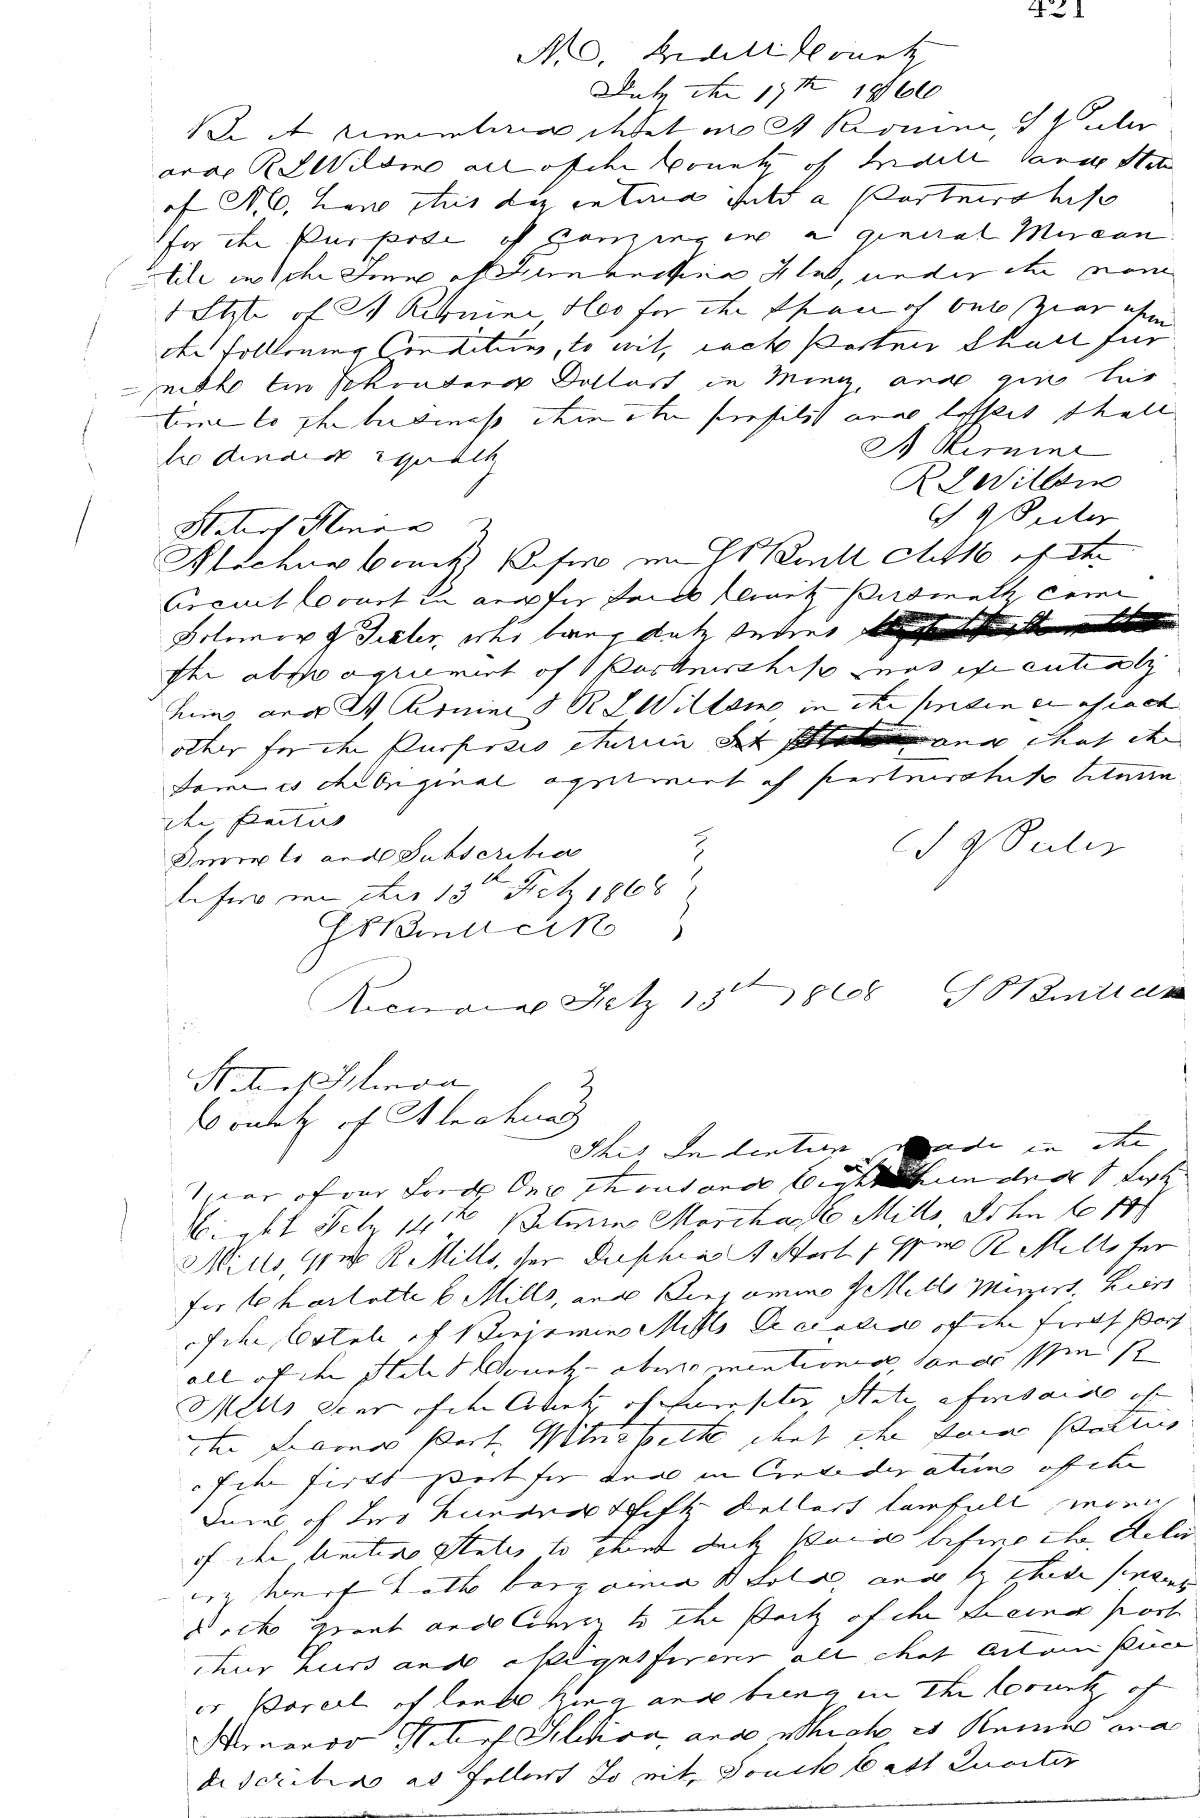 421
N.C. Iredell County
July the 17th 1866
Be it remembered that we A Rernine, S J Peeler
and R L Willson all of the County of Iredell and State
of N.C. have this day entered into a Partnership
for the Purpose of Carrying on a general Mercan
tile in the Town of Fernandina Fla, under the name
& Style of A Rernine & Co for the Space of One year upon
the following Conditions, to wit, each Partner Shall fur
nish ten thousand Dollars in Money, and give his
time to the business then the profits and losses shall
be divided equally
A Rernine
R L Willson
S J Peeler
State of Florida
Alachua County Before me Clerk of the
Circuit Court in and for Said County Personally came
Solomon J Peeler, who being duly sworn
the above agreement of Partnership was executed by
him and A Rernine & R L Willson in the presence of each
other for the Purposes therein Set and that the
Same is the Original agreement of partnership between
the parties
Sworn to and Subscribed
S J Peeler
before me this 13th Feby 1868
Clk
Recorded Feby 13th 1868
State of Florida
County of Alachua
This Indenture made in the
Year of our Lord One thousand Eight hundred & Sixty
Eight Feby 14th Between Martha E Mills, John C H
Mills, Wm R Mills, for A Hart & Wm R Mills for
for Charlotte C Mills, and Benjamin J Mills Minors, heirs
of the Estate of Benjamin Mills Deceased of the first Part
all of the State & County above mentioned, and Wm R
Mills Senr of the County of Sumpter, State aforesaid of
the Second Part, Witnesseth that the Said Parties
of the first part for and in Consideration of the
Sum of Two Hundred & fifty Dollars lawfull money
of the United States to them duly Paid before the deliv
ery hereof hath bargained & Sold, and by these presents
doth grant and Convey to the Party of the Second part
their heirs and assigns forever all that certain piece
or Parcel of land lying and being in the County of
Hernando State of Florida, and which is Known and
described as follows To wit, South East Quarter